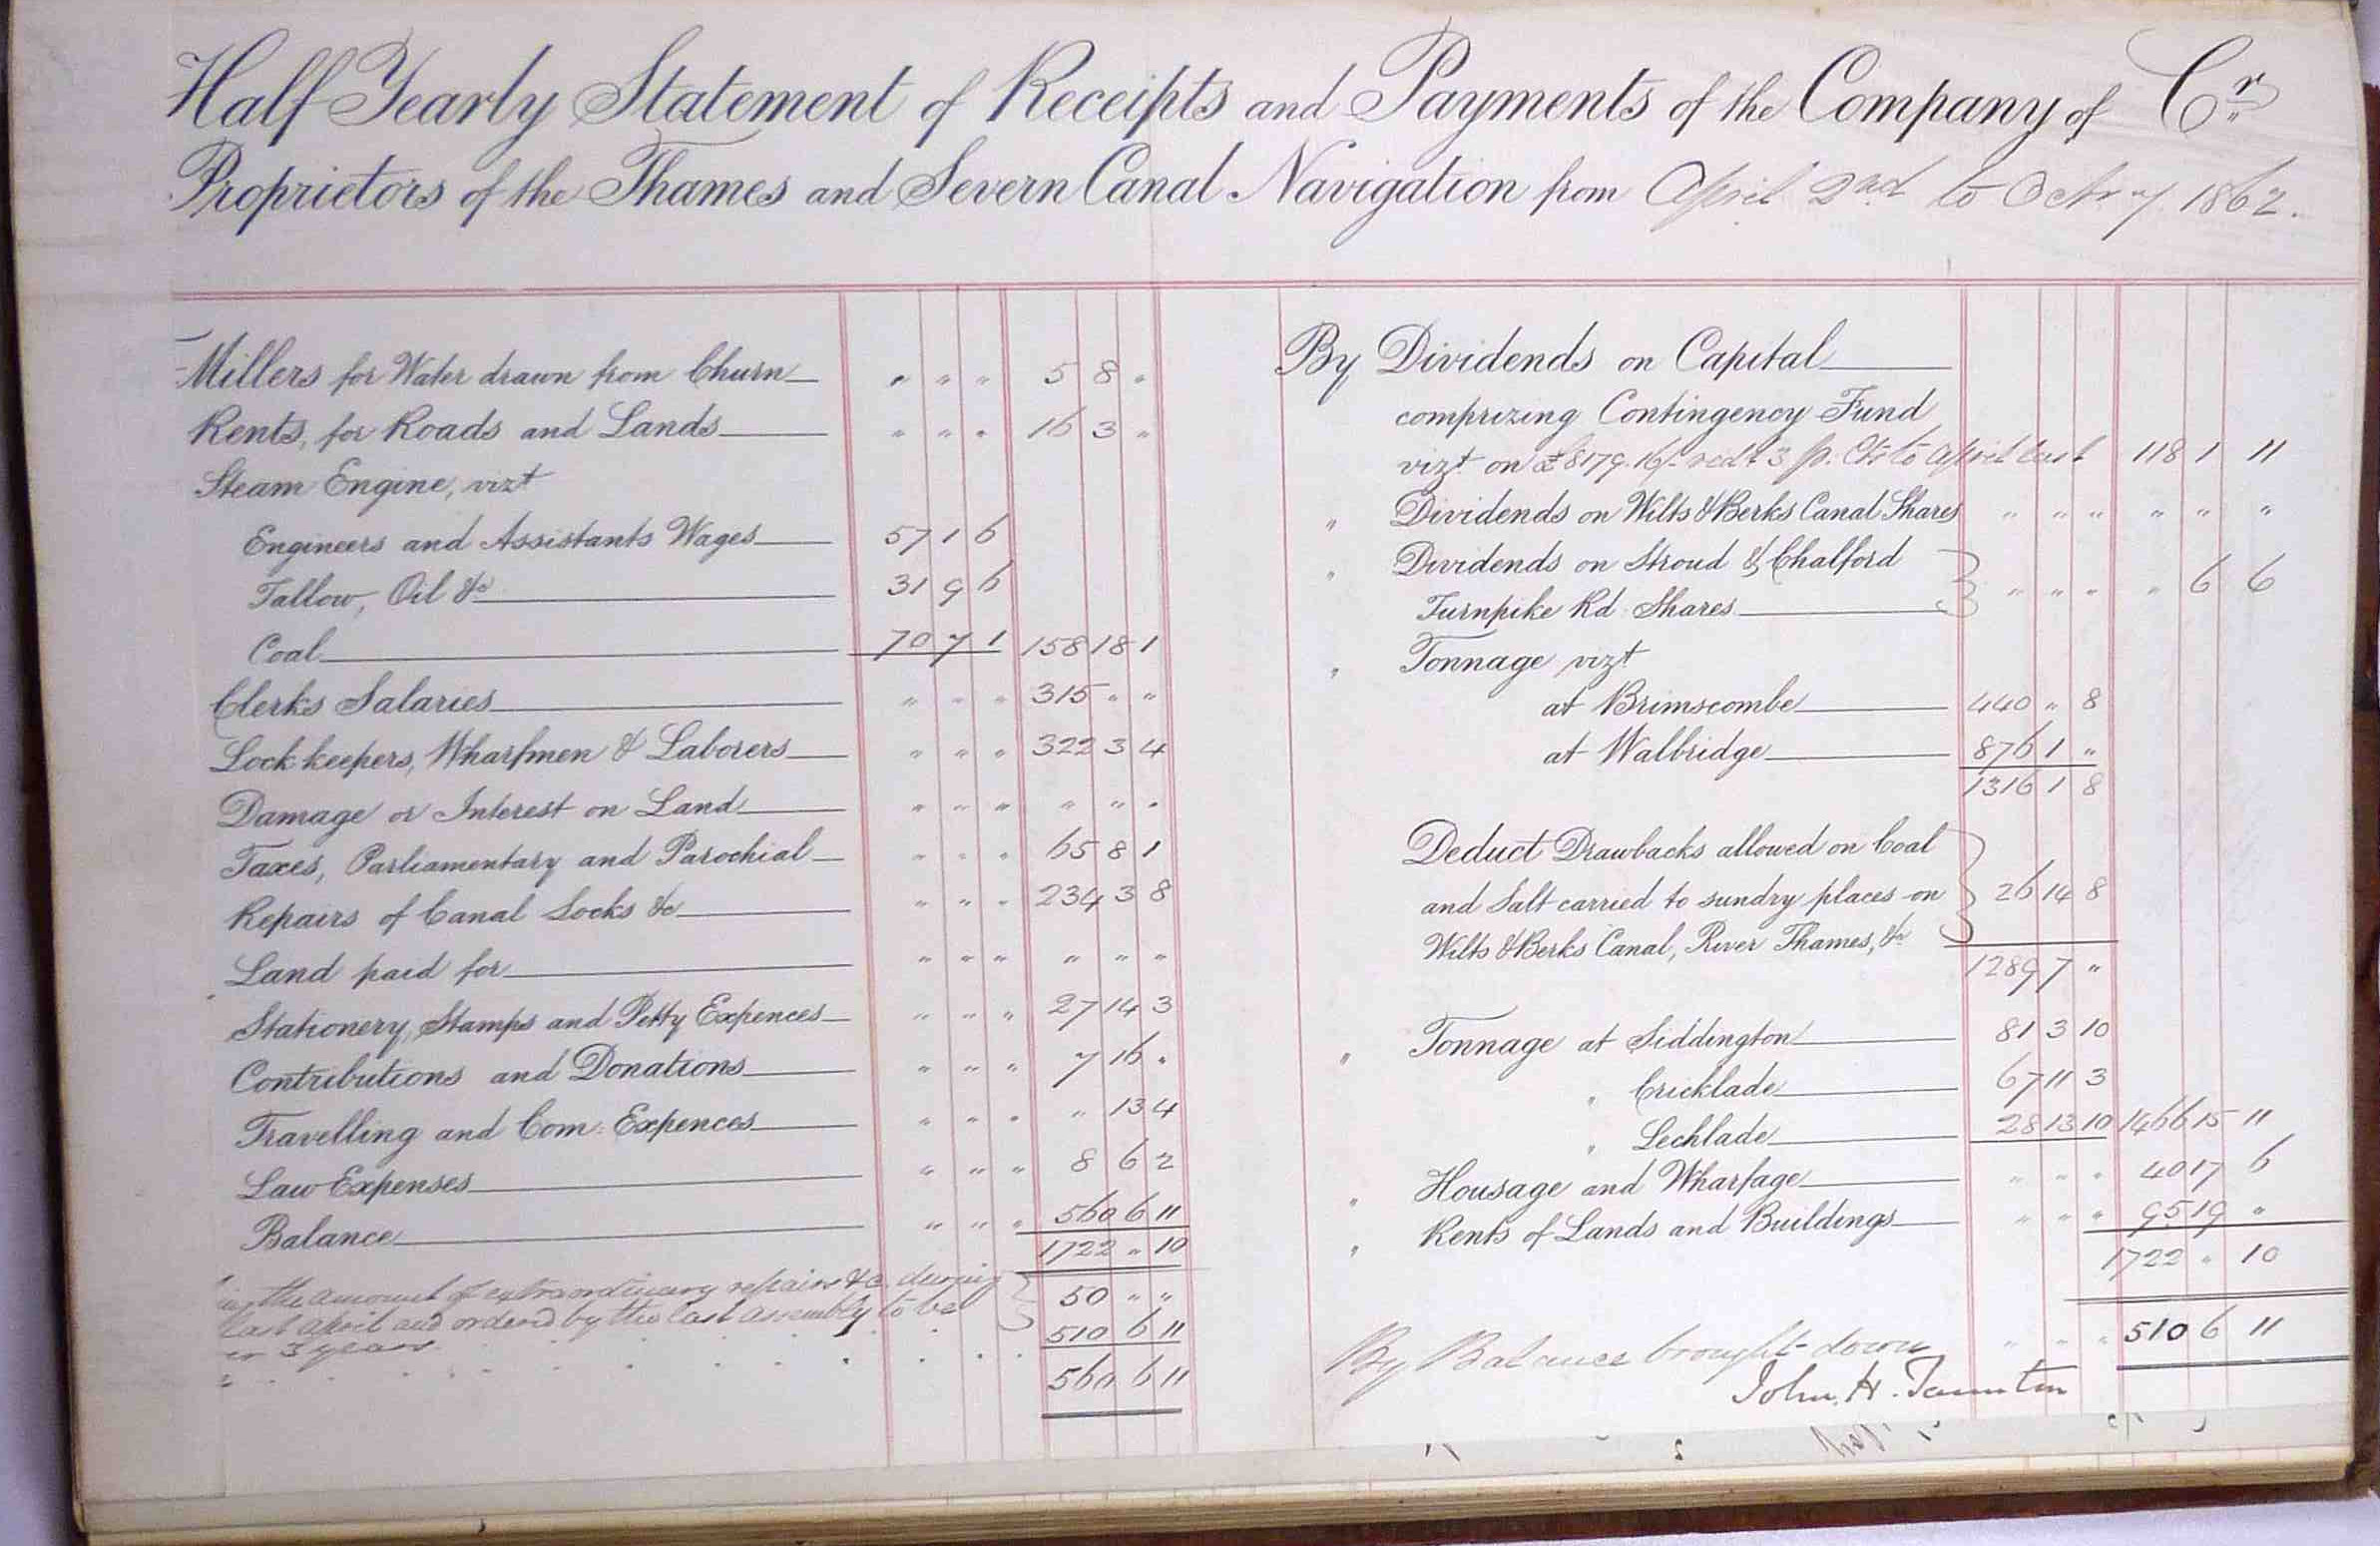 Half Yearly Statement of Receipts and Payments of the Company of Cr
Proprietors of the Thames and Severn Canal Navigation from April 2nd to Octr 7 1862.
Millers for Water drawn from Churn " " " 5 8 "
Rents, for Roads and Lands " " " 16 3 "
Steam Engine, vizt
Engineers and Assistants Wages 57 1 6
Tallow, Oil &c 31 9 6
Coal 70 7 1 158 18 1
Clerks Salaries " " " 315 " "
Lock keepers, Wharfmen & Laborers " " " 322 3 4
Damage or Interest on Land " " " " " "
Taxes, Parliamentary and Parochial " " " 65 8 1
Repairs of Canal Locks &c " " " 234 3 8
Land paid for " " " " " "
Stationery, Stamps and Petty Expences " " " 27 14 3
Contributions and Donations " " " 7 16 "
Travelling and Com: Expences " " " " 13 4
Law Expenses " " " 8 6 2
Balance " " " 560 6 11
1722 " 10
the amount of extraordinary repairs &c during
last April and ordered by the last assembly to be 50 " "
3 years 510 6 11
560 6 11
By Dividends on Capital
comprizing Contingency Fund
vizt on £8179.16/- redd 3 p. Cts to April last 118 1 11
" Dividends on Wilts & Berks Canal Shares " " " " " "
" Dividends on Stroud & Chalford
Turnpike Rd Shares " " " " 6 6
" Tonnage vizt
at Brimscombe 440 " 8
at Walbridge 876 1 "
1316 1 8
Deduct Drawbacks allowed on Coal
and Salt carried to sundry places on 26 14 8
Wilts & Berks Canal, River Thames, &c
1289 7 "
" Tonnage at Siddington 81 3 10
" Cricklade 67 11 3
" Lechlade 28 13 10 1466 15 11
" Housage and Wharfage " " " 40 17 6
" Rents of Lands and Buildings " " " 95 19 "
1722 " 10
By Balance brought down " " " 510 6 11
John. H. Taunton